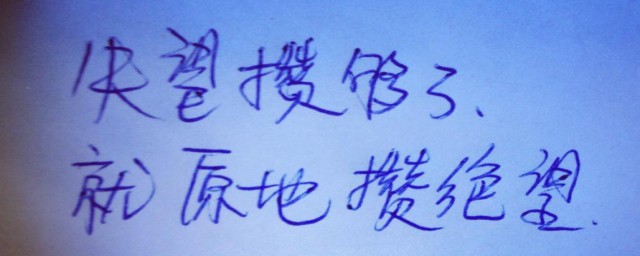 失望攒够了、
就原地攒绝望.